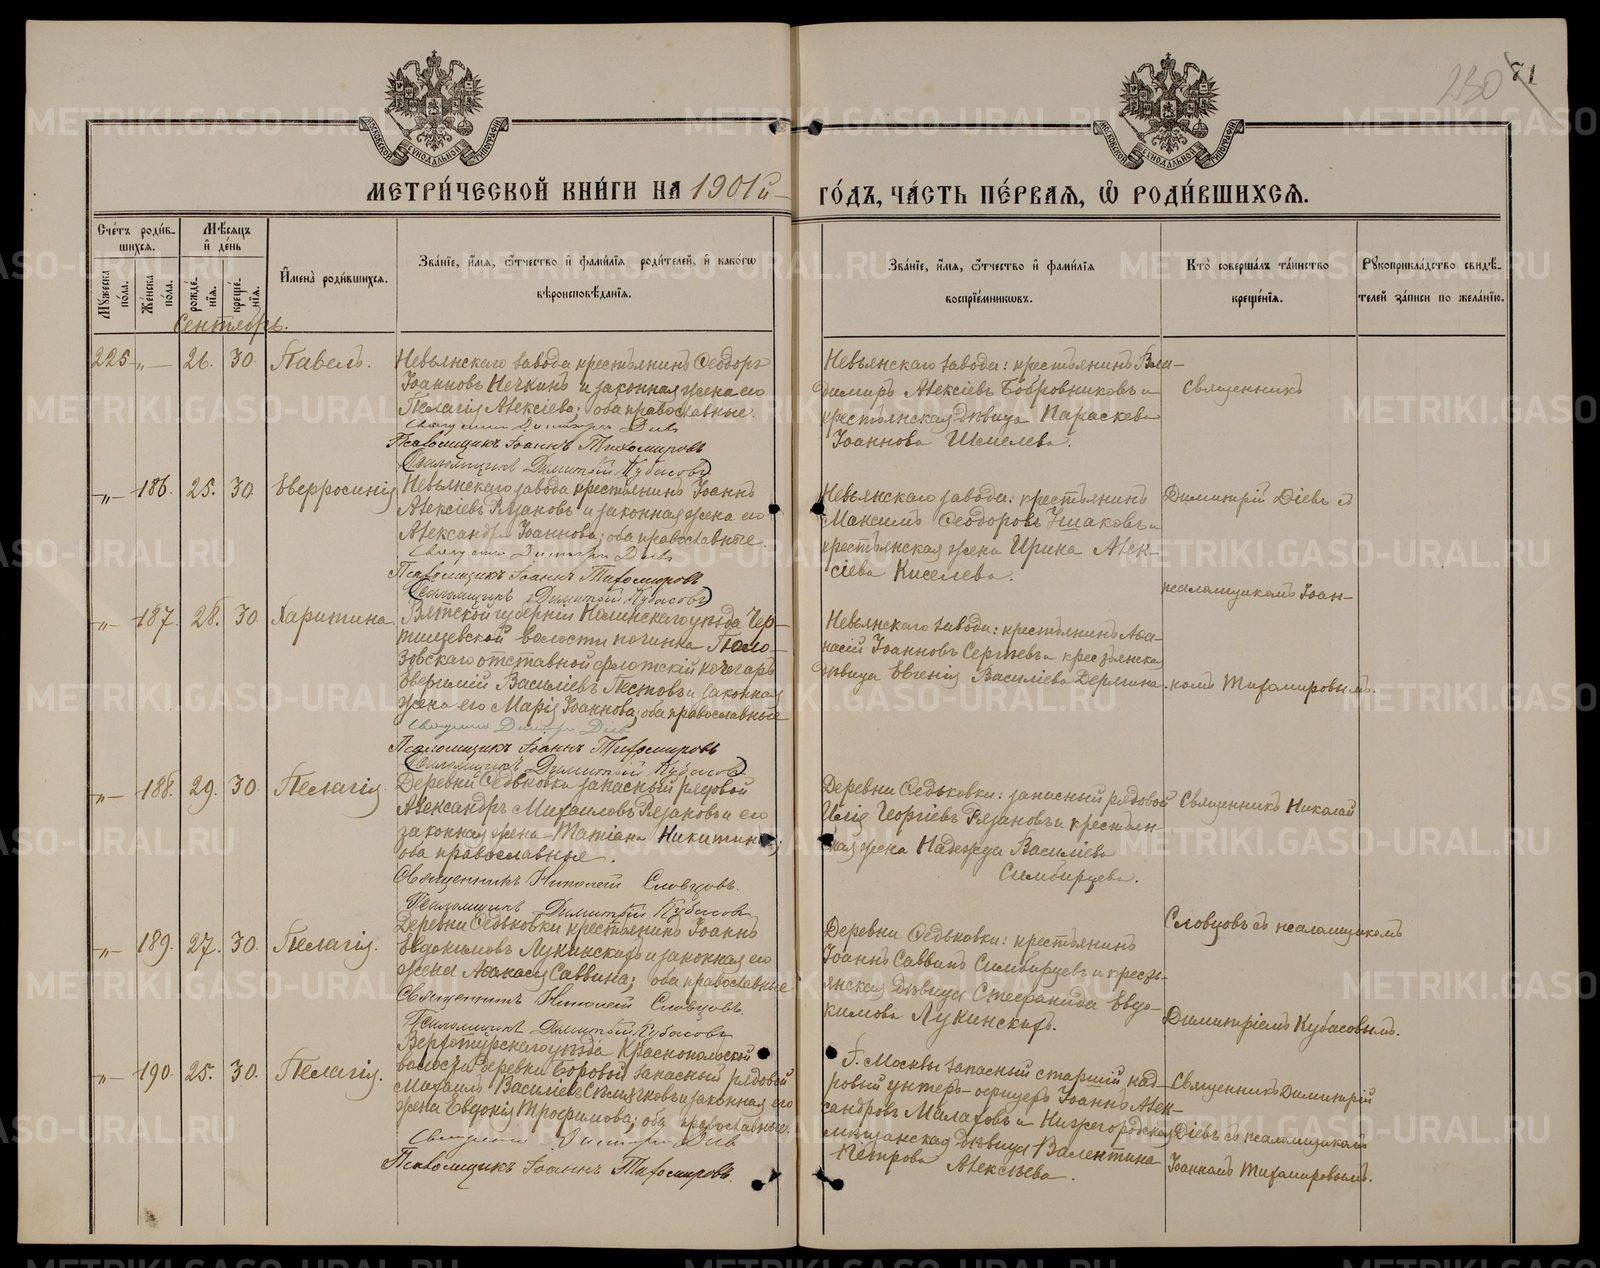 230 71
МЕТРИ́ЧЕСКОЙ КНИ́ГИ НА 1901й ГО́ДЪ, ЧА́СТЬ ПЕ́РВАЯ, Ѡ҆ РОДИ́ВШИХСЯ.
Сче́тъ роди́в-
шихся.
Мꙋжеска по́ла.
Же́нска по́ла.
Мѣ́сяцъ
и҆ де́нь
рожде́нїя.
креще́нїя.
И҆мена̀ роди́вшихся.
Зва́нїе, и҆́мя, ѻ҆́тчество и҆ фами́лїя роди́телей, и҆ како́гѡ
вѣроисповѣ́данїя.
Зва́нїе, и҆́мя, ѻ҆́тчество и҆ фами́лїя
воспрїе́мниковъ.
Кто̀ соверша́лъ та́инство
креще́нїя.
Рꙋкоприкла́дство свидѣ́-
телей за́писи по жела́нїю.
Сентябрь.
225 „ 26. 30. Павелъ.
Невьянскаго завода крестьянинъ Ѳеодоръ
Іоанновъ Нечкинъ и законная жена его
Пелагія Алексіева; оба православные.
Священникъ Димитрій Діевъ
Псаломщикъ Іоаннъ Тихомировъ
Псаломщикъ Димитрій Кубасовъ
Невьянскаго завода: крестьянинъ Вла-
димиръ Алексіевъ Бобровниковъ и
крестьянская дѣвица Параскева
Іоаннова Шмелева.
Священникъ
„ 186. 25. 30. Евфросинія
Невьянскаго завода крестьянинъ Іоаннъ
Алексіевъ Рязановъ и законная жена его
Александра Іоаннова; оба православные.
Священникъ Димитрій Діевъ
Псаломщикъ Іоаннъ Тихомировъ
Псаломщикъ Димитрій Кубасовъ
Невьянскаго завода: крестьянинъ
Максимъ Ѳеодоровъ Ушаковъ и
крестьянская жена Ирина Алек-
сіева Киселева.
Димитрій Діевъ съ
псаломщикомъ Іоан-
„ 187. 28. 30. Харитина
Вятской губерніи Нолинскаго уѣзда Чер-
тищевской волости починка
отставной флотскій кочегаръ
Евфимій Василіевъ Пестовъ и законная
жена его Марія Іоаннова; оба православные
Священникъ Димитрій Діевъ
Псаломщикъ Іоаннъ Тихомировъ
Псаломщикъ Димитрій Кубасовъ
Невьянскаго завода: крестьянинъ Аѳа-
насій Іоанновъ Сергѣевъ и крестьянская
дѣвица Евгенія Василіева Дерягина.
номъ Тихомировымъ.
„ 188. 29. 30. Пелагія
Деревни Ѳедьковки запасный рядовой
Александръ Михаиловъ Рязановъ и его
законная жена Татіана Никитина;
оба православные.
Священникъ Николай Словцовъ.
Псаломщикъ Димитрій Кубасовъ
Деревни Ѳедьковки: запасный рядовой
Илія Георгіевъ Рязановъ и крестьян-
ская жена Надежда Василіева
Симбирцева.
Священникъ Николай
Словцовъ съ псаломщикомъ
„ 189. 27. 30. Пелагія.
Деревни Ѳедьковки крестьянинъ Іоаннъ
Евдокимовъ Лукинскихъ и законная его
жена Аѳанасія Саввина; оба православные
Священникъ Николай Словцовъ.
Псаломщикъ Димитрій Кубасовъ
Деревни Ѳедьковки: крестьянинъ
Іоаннъ Саввинъ Симбирцевъ и кресть-
янская дѣвица Стефанида Евдо-
кимова Лукинскихъ.
Димитріемъ Кубасовымъ.
„ 190. 25. 30. Пелагія.
Верхотурскаго уѣзда Краснопольской
волости деревни Боровой запасный рядовой
Михаилъ Василіевъ и законная его
жена Евдокія Трофимова; оба православные.
Священникъ Димитрій Діевъ
Псаломщикъ Іоаннъ Тихомировъ.
Г. Москвы запасный старшій над-
ровый унтеръ-офицеръ Іоаннъ Алек-
сандровъ Малаховъ и Нижегородская
мѣщанская дѣвица Валентина
Петрова Алексѣева.
Священникъ Димитрій
Діевъ съ псаломщикомъ
Іоанномъ Тихомировымъ.
METRIKI.GASO-URAL.RU